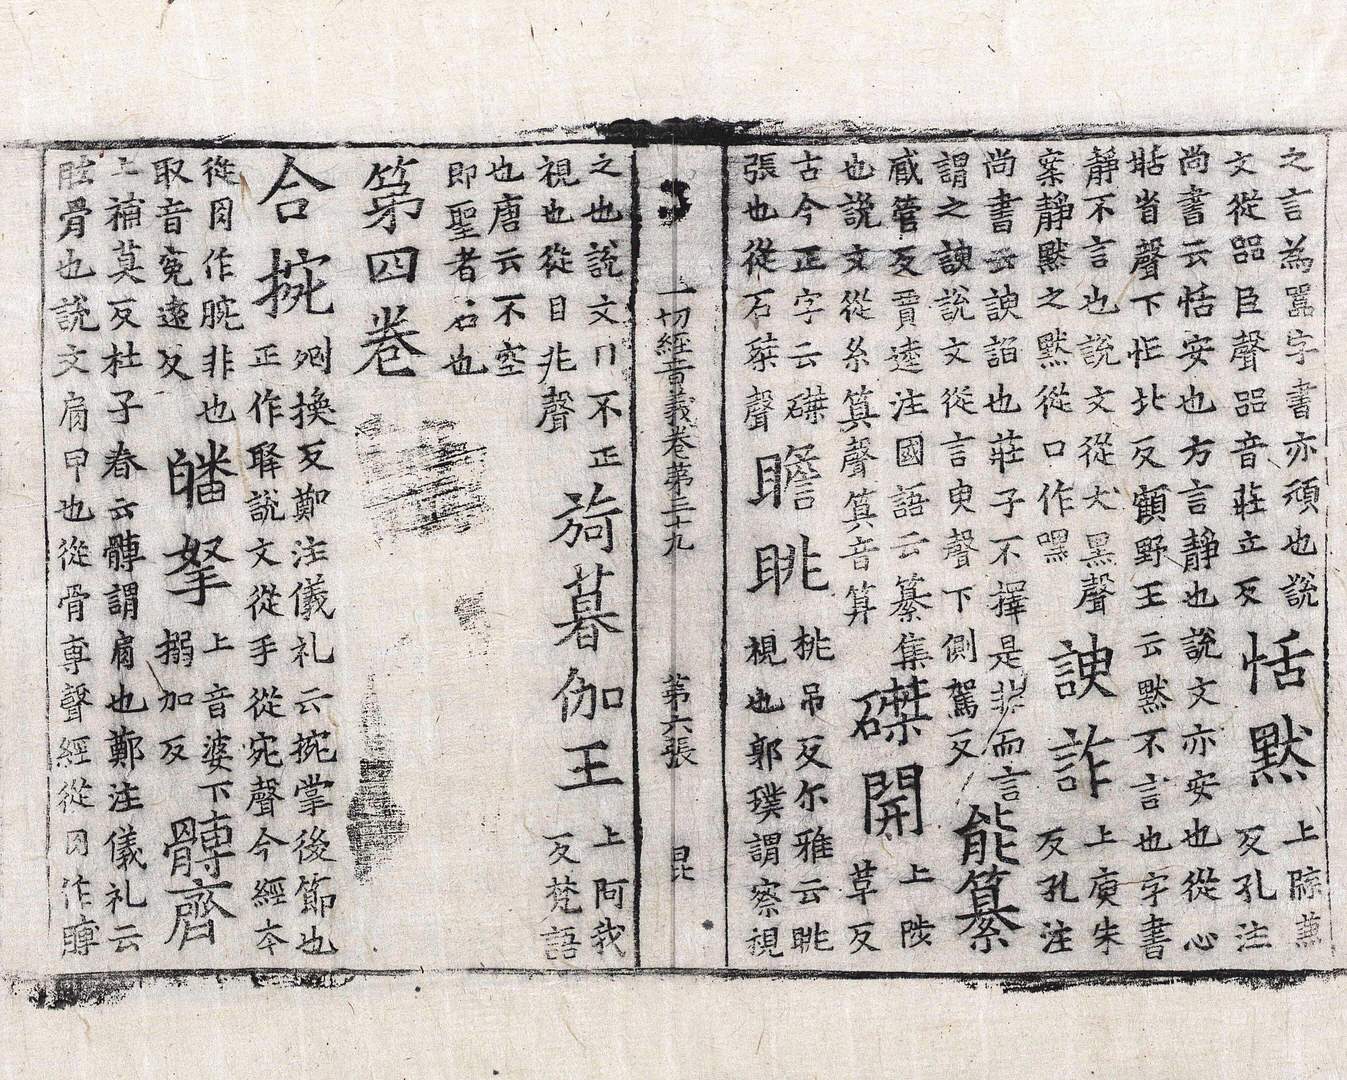 之言為嚚字書亦頑也說
文從㗊臣聲㗊音莊立反
恬默
上牒兼
反孔注
尚書云恬安也方言靜也說文亦安也從心
甛省聲下恾北反顧野王云默不言也字書
靜不言也說文從犬黑聲
案靜默之默從口作嘿
諛詐
上庾朱
反孔注
尚書云諛諂也莊子不擇是非而言
謂之諛說文從言臾聲下側駕反
能纂
臧管反賈逵注國語云纂集
也說文從糸算聲算音算
磔開
上陟
草反
古今正字云磔
張也從石桀聲
瞻眺
桃吊反尔雅云眺
視也郭璞謂察視
一切經音義卷第三十九 第六張 昆
之也說文不正
視也從目兆聲
旖暮伽王
上阿我
反梵語
也唐云不空
即聖者名也
第四卷
合捥
剜換反鄭注儀礼云捥掌後節也
正作掔說文從手從宛聲今經夲
從月作腕非也
取音寃遠反
皤拏
上音婆下
搦加反
髆齊
上補莫反杜子春云髆謂肩也鄭注儀礼云
胘骨也說文肩甲也從骨尃聲經從月作膊